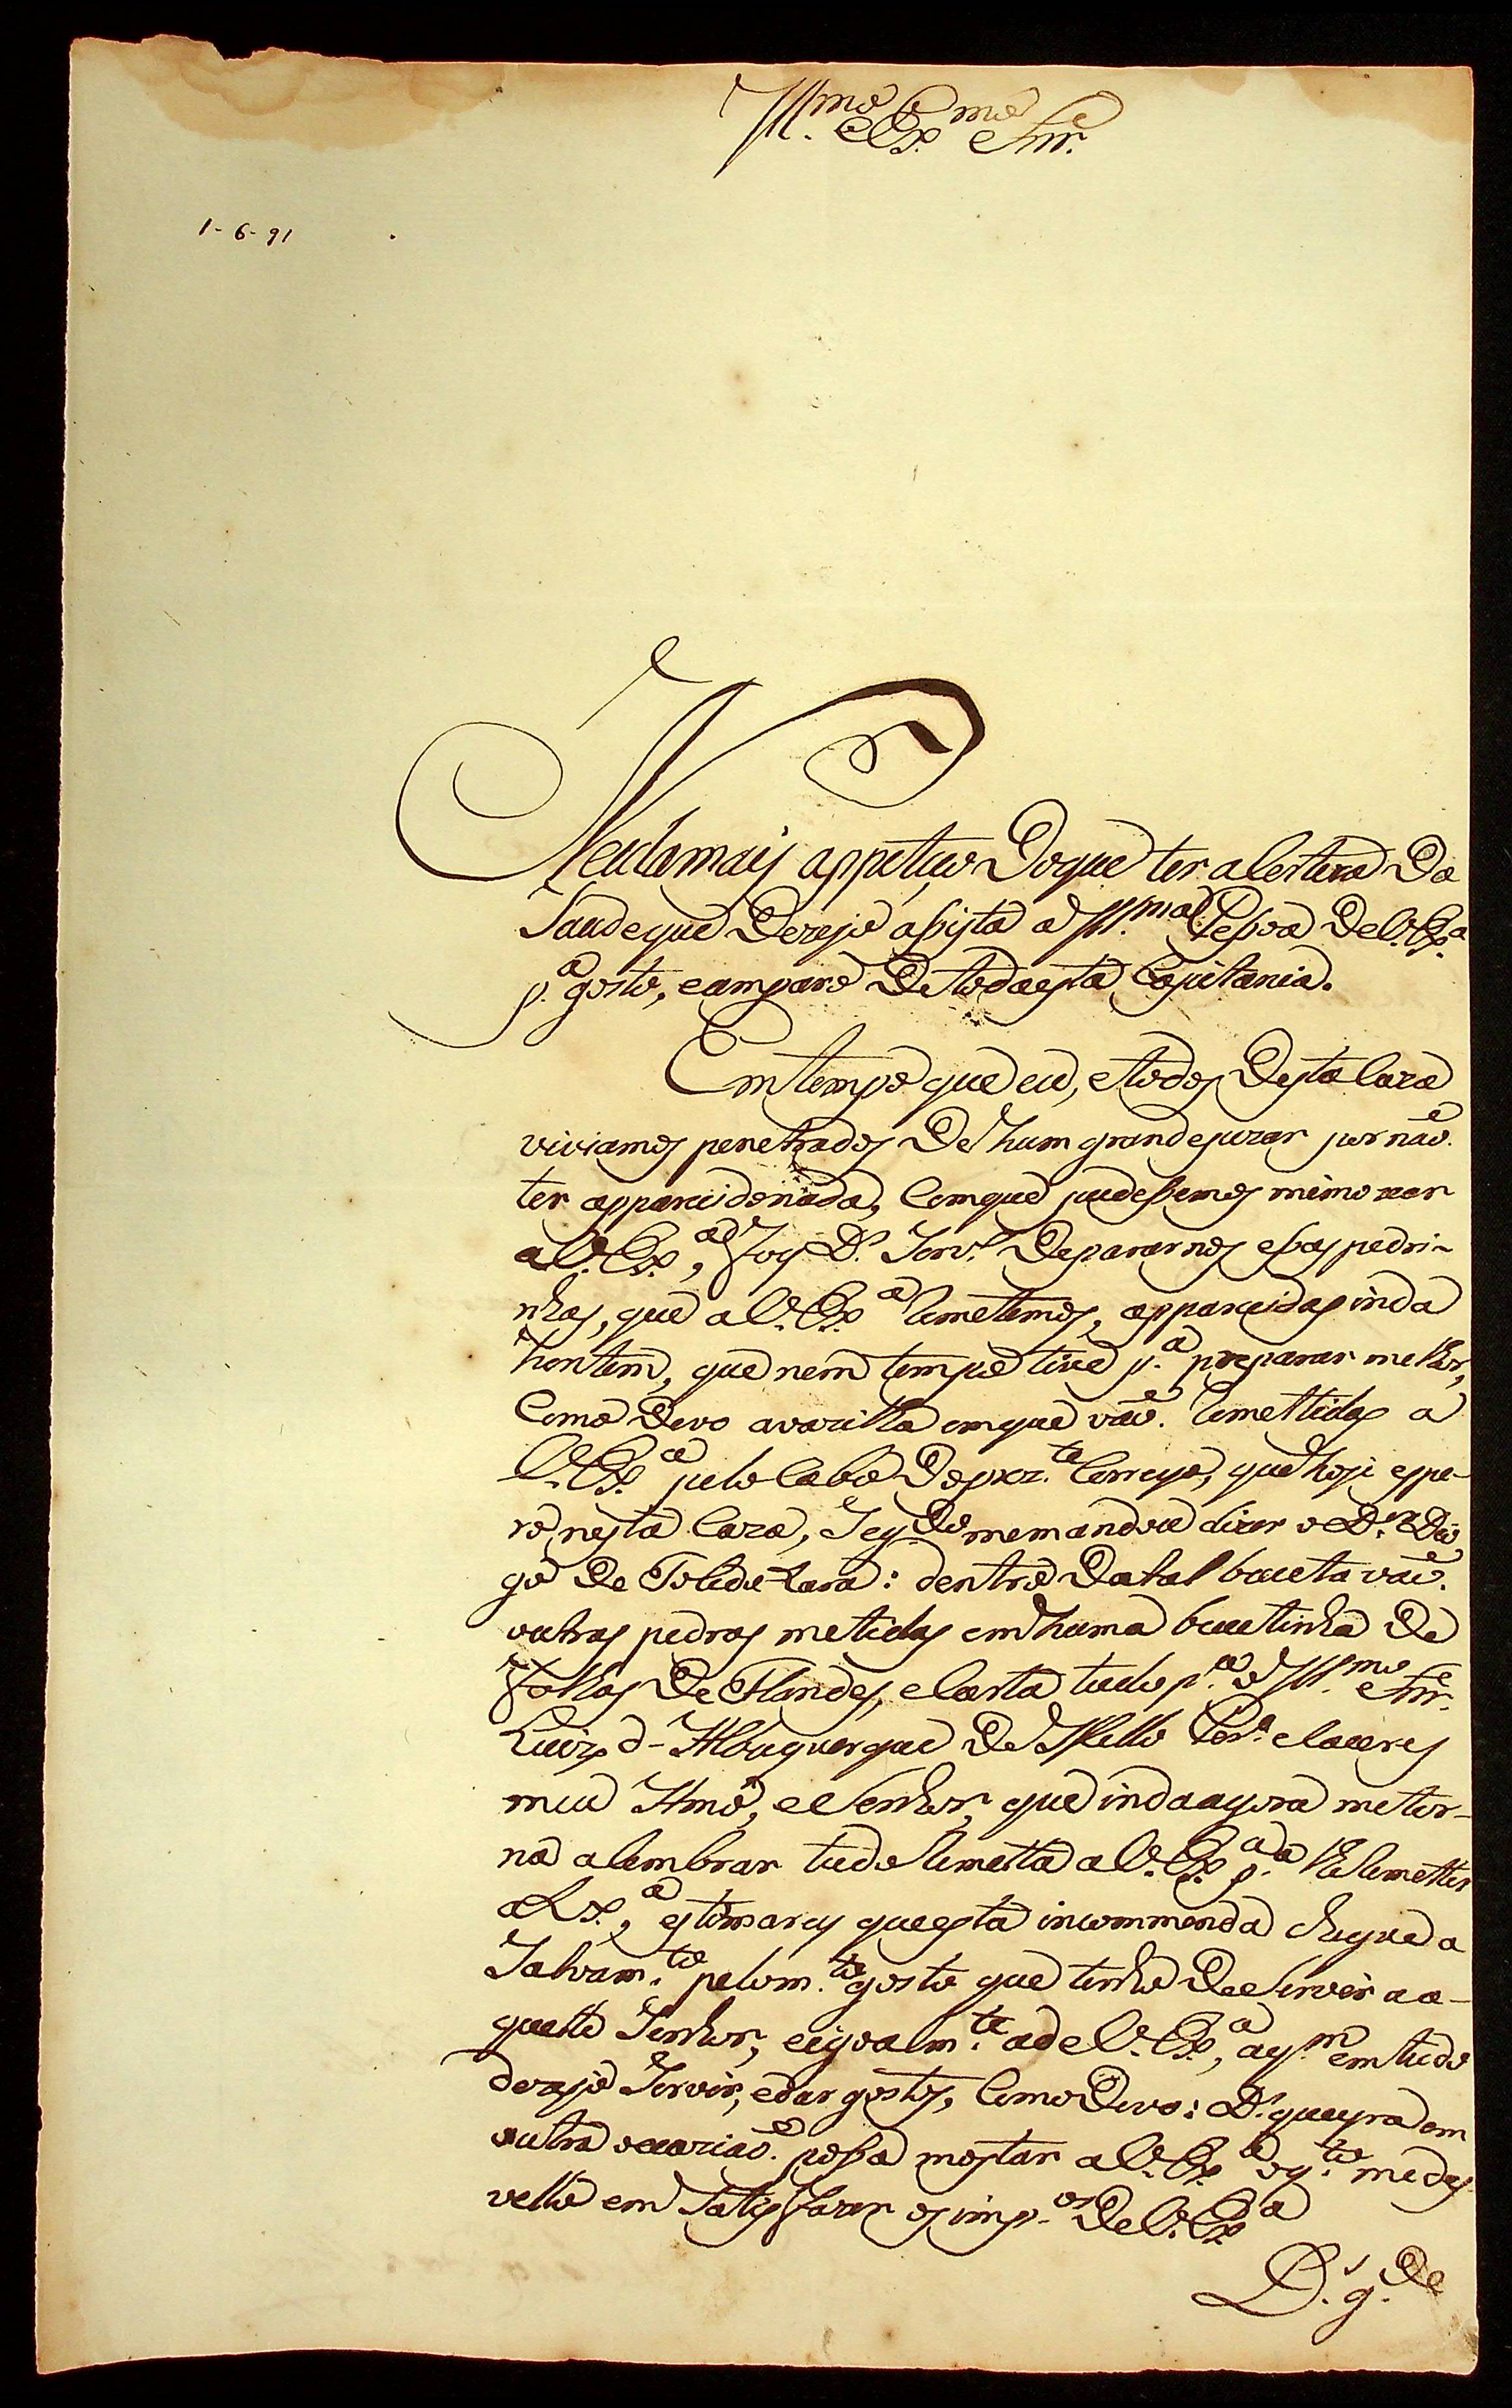 Ill.mo e Ex.mo Snr.
1-6-91
Nada mais appeteço Do que ter a certeza Da
Saude que Dezejo asista a Ill.ma Pesoa De V. Ex.a
p.a gosto, e amparo De toda esta Capitania.
Em tempo que eu, e todos Desta Caza
viviamos penetrados De hum grande pezar por não
ter apparecido nada, Com que pudesemos mimozear
a V. Ex.a, foy D.s Serv.o Depararnos esas pedri-
nhas, que a V. Ex.a Remetemos, apparecidas inda
hontem, que nem tempo tive p.a preparar melhor,
Como Devo a vazilha em que vão Remettidas a
V. Ex.a pelo Cabo Do prez.te Correyo, que hoje espe-
ro nesta Caza, Seg.do me mandou dizer o D.or Dio
go De Toledo Lara: dentro Da tal buceta vão
outras pedras metidas em huma bucetinha De
folhas De Flandes, e Carta tudo p.a o Ill.mo Snr.
Luiz d-Albuquerque De Mello Per.a e Caceres
meu Amo, e Senhor, que inda agora me tor-
na a lembrar tudo Remetta a V. Ex.a p.a lhe Remetter
a Lx.a, estimarey que esta incommenda chegue a
Salvam.to pelo m.to gosto que tenho De Servir a a-
quelle Senhor, e igoalm.te a de V. Ex.a, a q.m em tudo
dezejo Servir, e dar gostos, Como Devo: D.s queyra em
outra occazião posa mostar a V. Ex.a o q.to me des
vello em Satisfazer os imp.os De V. Ex.a
D.s g.de